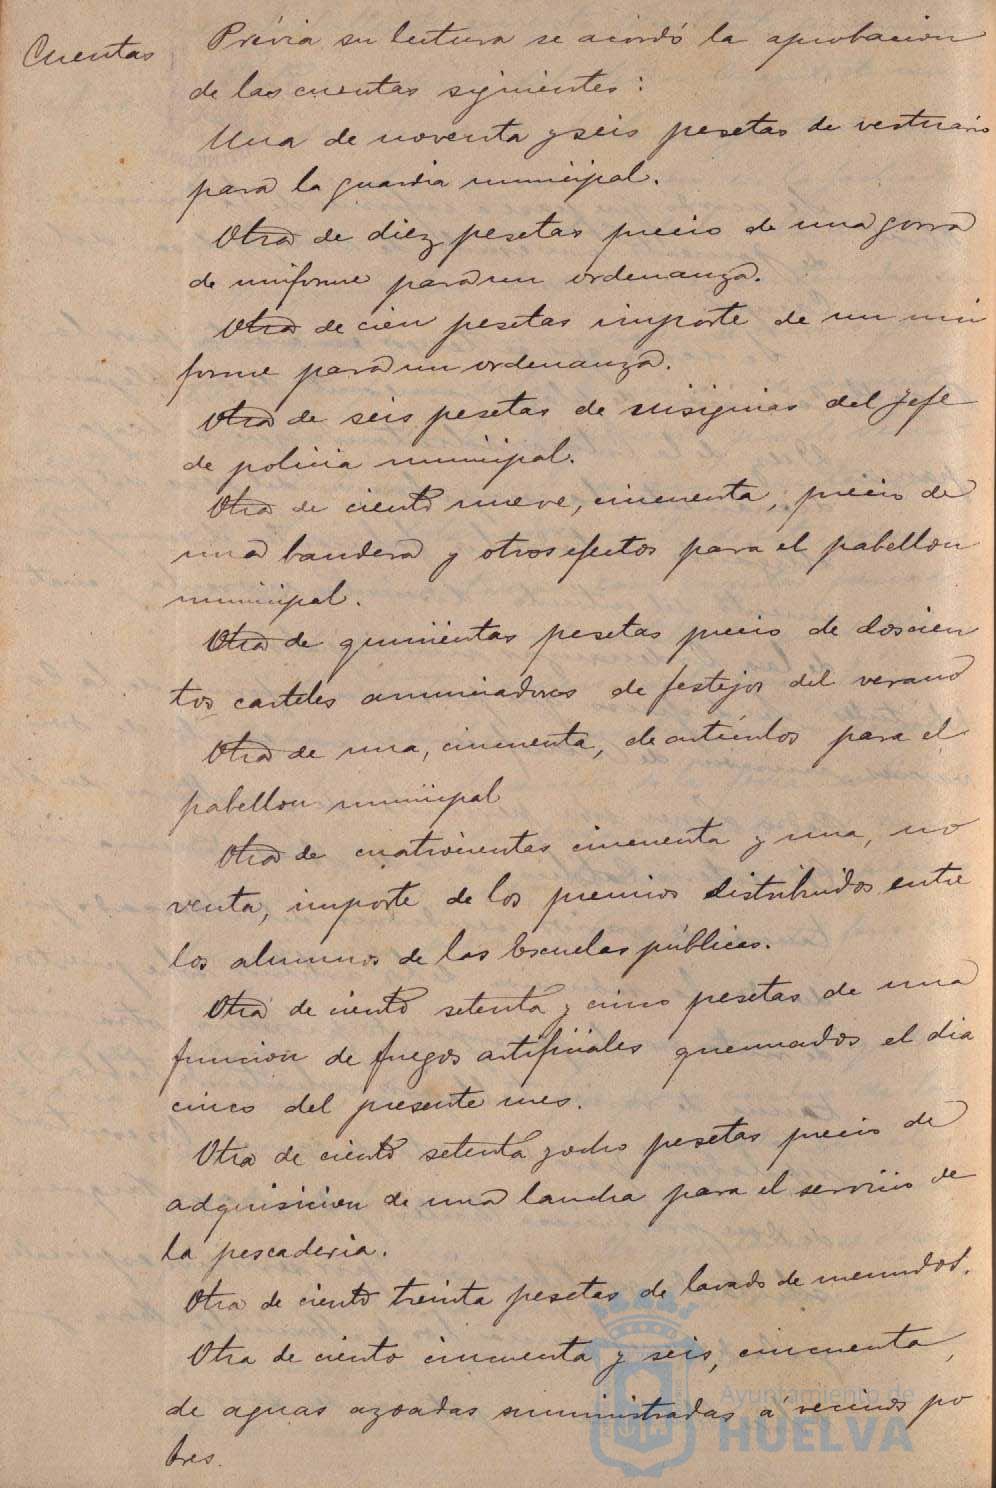 Cuentas
Prévia su lectura se acordó la aprobacion
de las cuentas siguientes:
Una de noventa y seis pesetas de vestuario
para la guardia municipal.
Otra de diez pesetas precio de una gorra
de uniforme para un ordenanza.
Otra de cien pesetas importe de un uni
forme para un ordenanza.
Otra de seis pesetas de insignias del Jefe
de policia municipal.
Otra de ciento nueve, cincuenta, precio de
una bandera y otros efectos para el pabellon
municipal.
Otra de quinientas pesetas precio de doscien
tos carteles anunciadores de festejos del verano
Otra de una, cincuenta, de artículos para el
pabellon municipal
Otra de cuatrocientas cincuenta y una, no
venta, importe de los premios distribuidos entre
los alumnos de las Escuelas públicas.
Otra de ciento setenta y cinco pesetas de una
funcion de fuegos artificiales quemados el dia
cinco del presente mes.
Otra de ciento setenta y ocho pesetas precio de
adquisicion de una lancha para el servicio de
la pescaderia.
Otra de ciento treinta pesetas de lavado de menudos.
Otra de ciento cincuenta y seis, cincuenta,
de aguas azoadas suministradas á vecinos po
bres.
Ayuntamiento de
HUELVA